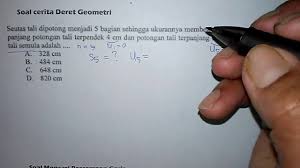 Soal cerita Deret Geometri
Seutas tali dipotong menjadi 5 bagian sehingga ukurannya
panjang potongan tali terpendek 4 cm dan potongan tali terpanjang
tali semula adalah ....
A. 328 cm
B. 484 cm
C. 648 cm
D. 820 cm
S5 = ?